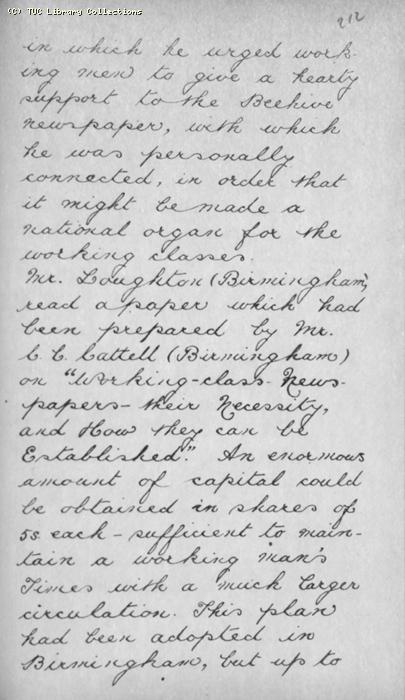 (C) TUC Library Collections
212
in which he urged work-
ing men to give a hearty
support to the Beehive
newspaper, with which
he was personally
connected, in order that
it might be made a
national organ for the
working classes.
Mr. Loughton (Birmingham),
read a paper which had
been prepared by Mr.
C. C. Cattell (Birmingham)
on "Working-class News-
papers - their Necessity,
and How they can be
Established." An enormous
amount of capital could
be obtained in shares of
5s each - sufficient to main-
tain a working man's
Times with a much larger
circulation. This plan
had been adopted in
Birmingham, but up to